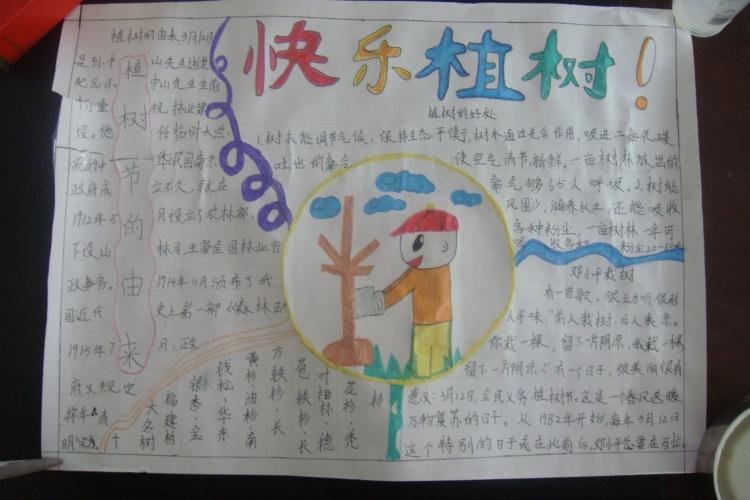 快乐植树！
植树的由来3月12日
植树节的由来
是孙中山先生逝世
纪念日。中山先生生前
十分重视林业建
设。他任临时大总
华民国南京
政府成立不久，就在
1912年5月设立了农林部，
下设山林司，主管全国林业行
政事务。1914年11月颁布了我
国近代史上第一部《森林法》
1915年7月，政
府又规定
将年清
明定为
植树的好处
1.树木能调节气候，保持生态平衡，树木通过光合作用，吸进二氧化碳
吐出的氧气使空气清节、新鲜。一亩树林放出的
氧气够65人呼吸。2.树能
风固沙，涵养水土，还能吸收
各种粉尘，一亩树林一年可
吸收各种粉尘20-60吨
邓小平栽树
有一首歌，很云力听很耐
人寻味“前人栽树，后人乘凉。
你栽一棵，留下一片阴凉，我栽一棵
留下一片阴凉。”有一个日子，很美丽很有
意义：3月12日，全民义务植树节。这是一个春风送暖
万物复苏的日子。从1982年开始，每年3月12日
这个特别的日子或在此前后，邓小平总要在百忙
十
大名树
福建柏
银杏、宝
钱松、华东
黄杉油杉、南
方铁杉、长
苞铁杉、长
叶柏林、穗
花杉、秃
杉